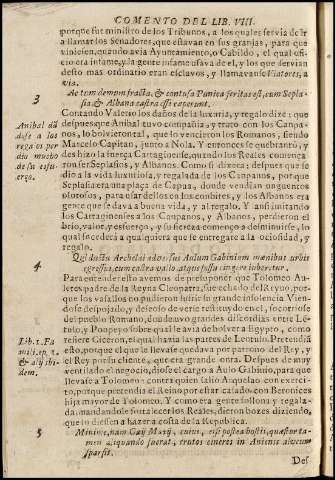 COMENTO DEL LIB. VIII.
porque fue ministro de los Tribunos, a los quales servia de ir
a llamar los Senadores, que estavan en sus granjas, para que
viniesen, quando avia Ayuntamiento, o Cabildo, el qual ofi-
cio era infame, y la gente infame usava de el, y los que servian
desto mas ordinario eran esclavos, y llamavanse Viatores, a
via.
3
Ac tum demum fracta, & contusa Punica feritas est, cum Sepla-
sia, & Albana castra esse coeperunt.
Contando Valerio los daños de la luxuria, y regalo dize: que
despues que Anibal tuvo compañia, y trato con los Canpa-
nos, lo bolvieron tal, que lo vencieron los Romanos, siendo
Marcelo Capitan, junto a Nola. Y entonces se quebrantò, y
des hizo la fiereça Cartaginense, quando los Reales comença-
ron ser Seplasios, y Albanos. Como si dixera: despues que se
dio a la vida luxuriosa, y regalada de los Canpanos, porque
Seplasia era una plaça de Capua, donde vendian unguentos
olorosos, para usar dellos en los conbites, y los Albanos era
gente que se dava a buena vida, y al regalo. Y assi juntando
los Cartaginenses a los Canpanos, y Albanos, perdieron el
brio, valor, y esfuerço, y su fiereça començo a desminuirse, lo
qual sucederà a qualquiera que se entregare a la ociosidad, y
regalo.
Anibal dã
dose a los
rega os per
dio mucho
de su esfu
erço.
4
Quid dictu Archelai adversus Aulum Gabinium moenibus urbis
egressus, cum castra vallo, atque fossa cingere iuberetur.
Para entender esto avemos de presuponer que Tolomeo Au-
letes padre de la Reyna Cleopatra, fue echado del Reyno, por-
que los vasallos no pudieron sufrir su grande insolencia. Vien-
dose despojado, y deseoso de verse restituydo en el, socorriose
del pueblo Romano, donde uvo grandes discordias entre Lẽ-
tulo, y Ponpeyo sobre qual le avia de bolver a Egypto, como
refiere Ciceron, el qual hazia las partes de Lentulo. Pretendiã
esto, porque el que le llevasse quedava por patron del Rey, y
el Rey por su cliente, que era grande onra. Despues de muy
ventilado el negocio, diose el cargo a Aulo Gabinio, para que
llevasse a Tolomeo: contra quien salio Arquelao con exerci-
to, porque pretendia el Reino por estar casado con Beronices
hija mayor de Tolomeo. Y como era gente follona y regala-
da, mandandole fortalecer los Reales, dieron bozes diziendo,
que lo diessen a hazer a costa de la Republica.
Lib. 1. Fa
mili. ep. 1.
& alij ibi-
dem.
5
Minime, nam Caij Marij, cuius, etsi postea hosti, quaestor ta-
men aliquando fuerat, trutos cineres in Anienis alveum
sparsit.
Des